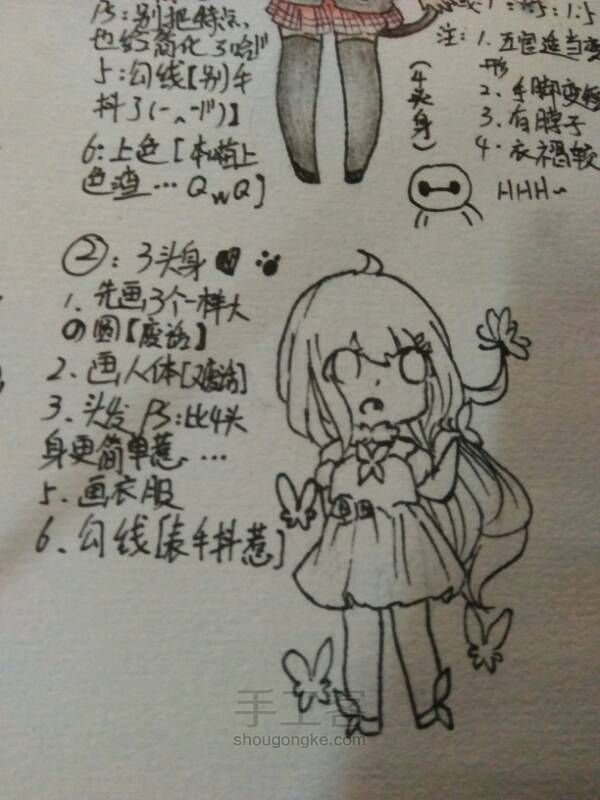 PS:别把特点
也给简化了哈
5:勾线【别手
抖了(-^-)】
6:上色[本喵上
色渣…QwQ]
(4头身)
:5:1:5
注:1.五官适当变
形
2.手脚变
3.有脖子
4.衣褶较
HHH~
②:3头身
1.先画3个一样大
の圆【废话】
2.画人体[又废话]
3.头发 PS:比4头
身更简单惹…
5.画衣服
6、勾线[表手抖惹]
手工客
shougongke.com